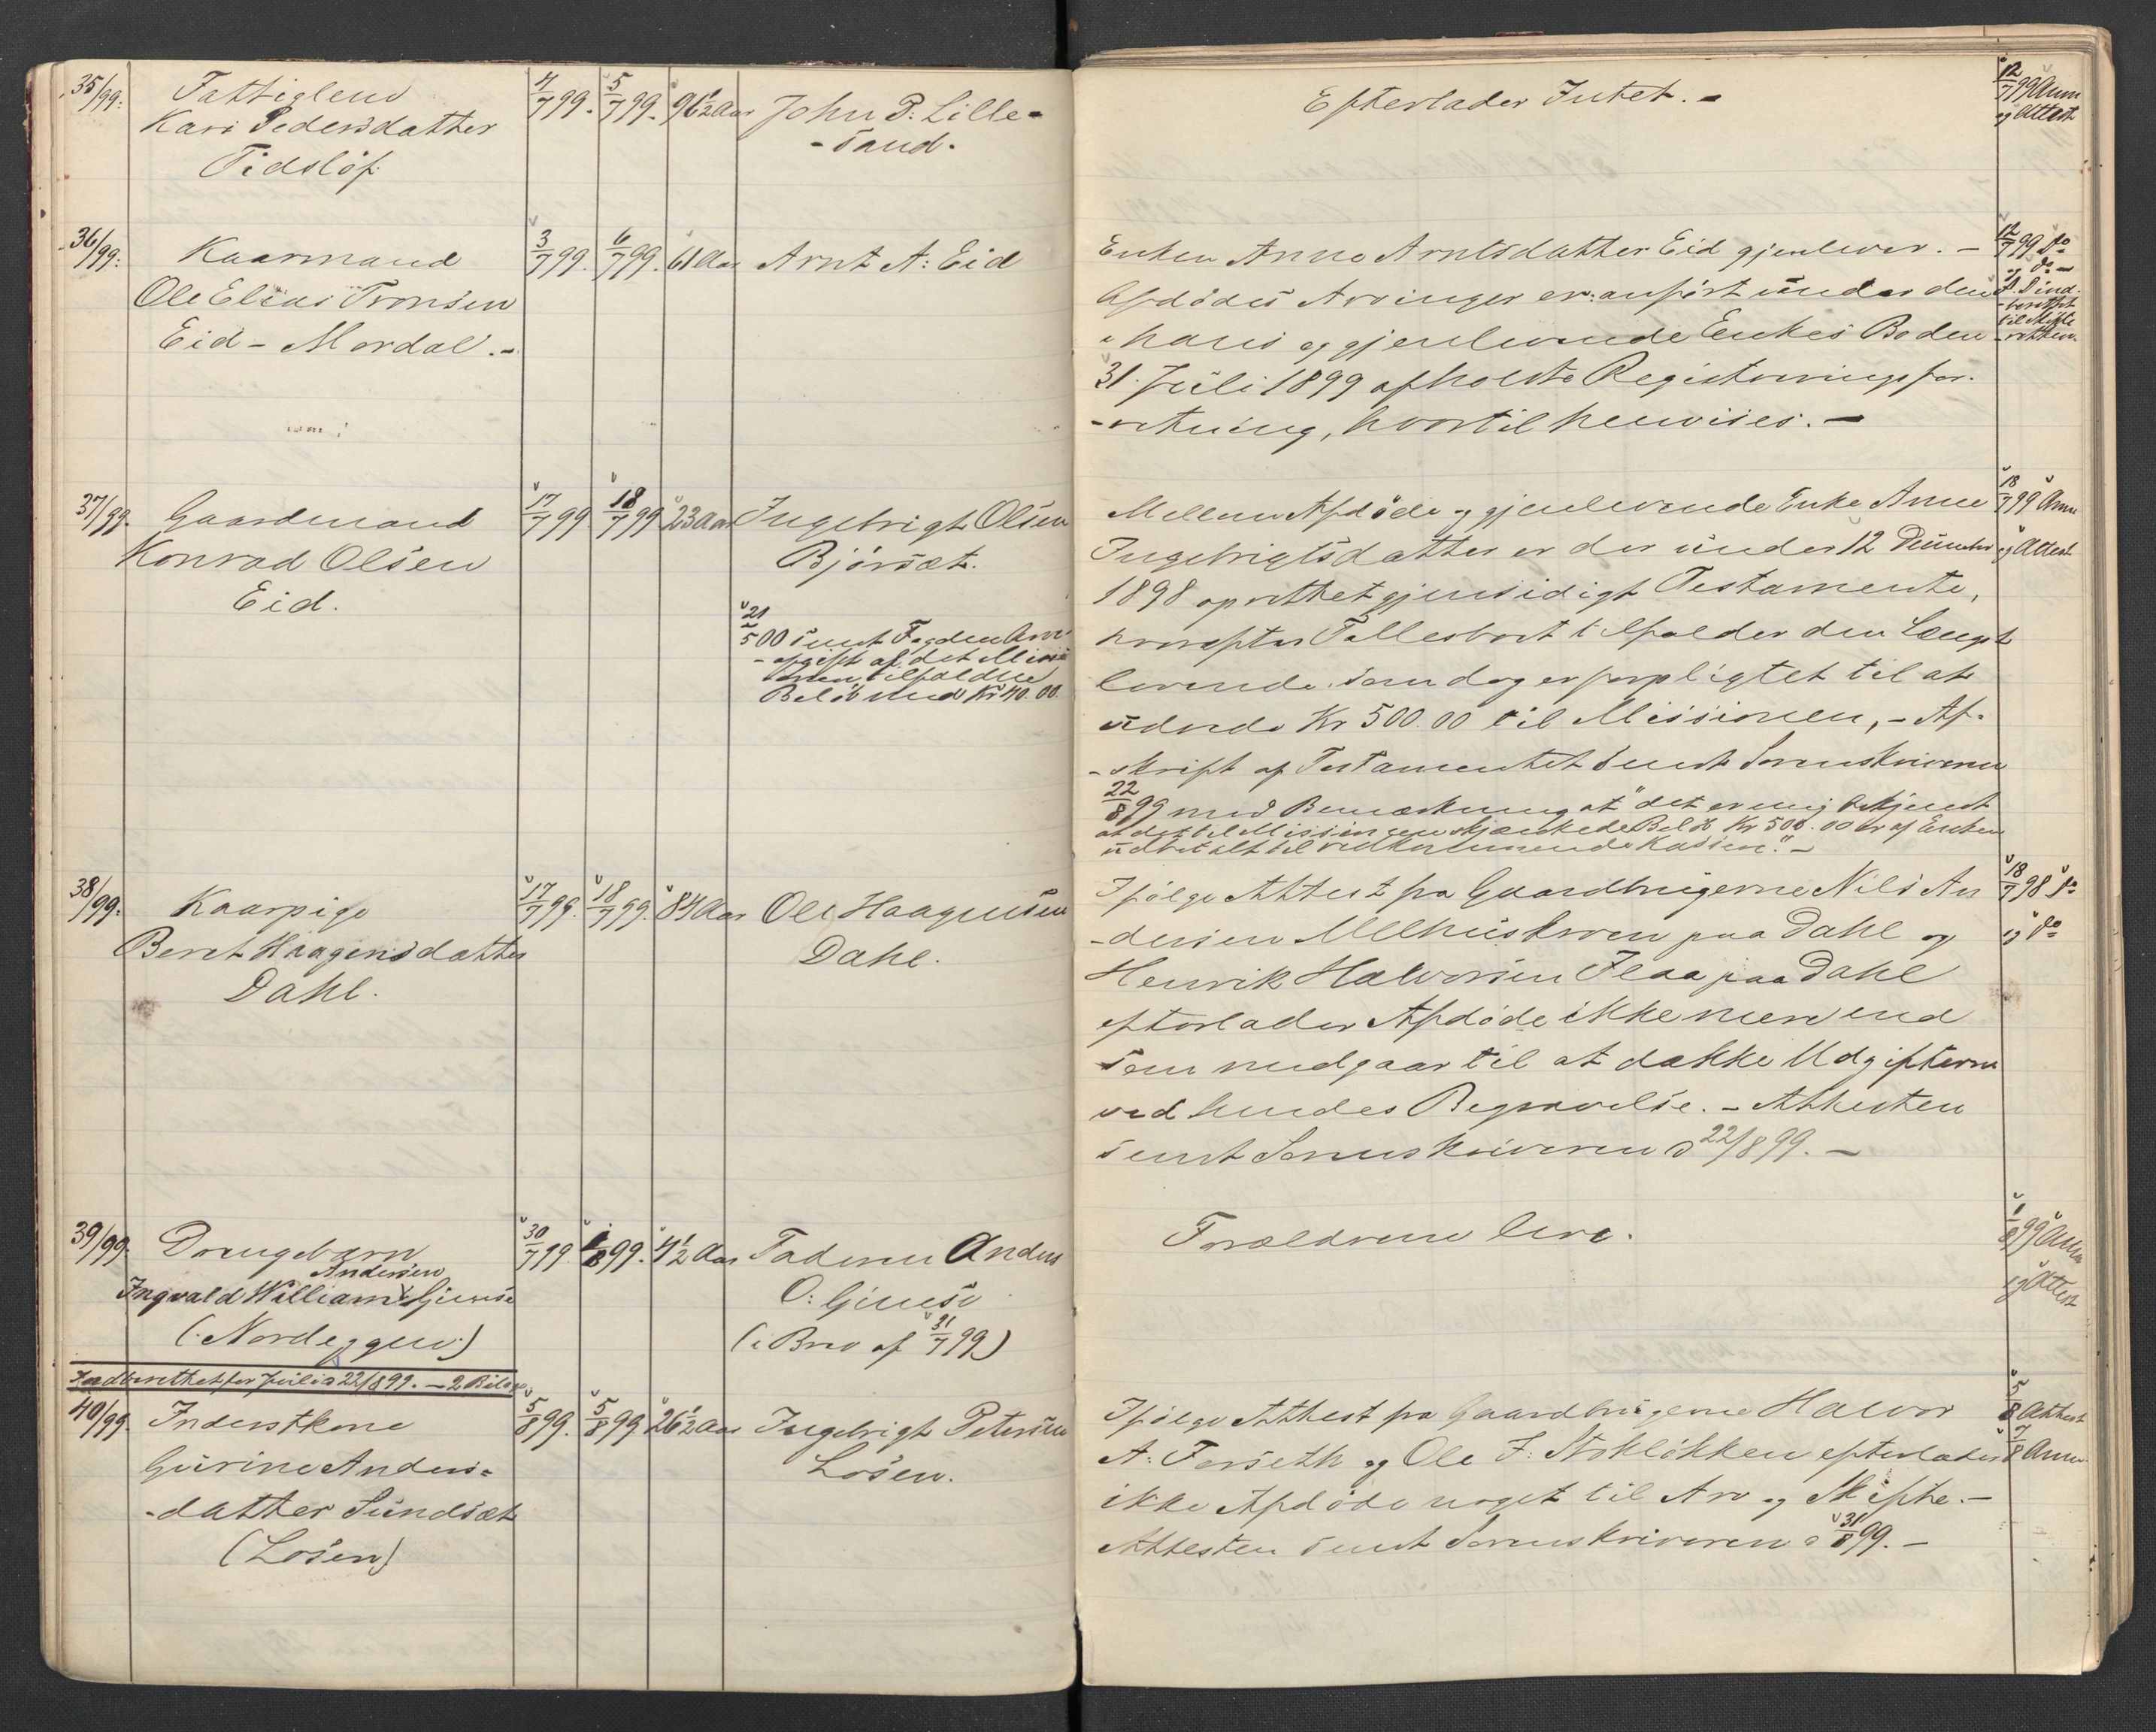 35/99.
Fattiglem
Kari Pedersdatter
Tidsløf.
4/7 99.
5/7 99.
96½ Aar
John P. Lille-
-sand.
Efterlader Intet. -
12/7 99 Anm
og Attest
36/99.
Kaarmand
Ole Elias Tronsen
Eid - Mordal. -
3/7 99.
6/7 99.
61 Aar
Arnt A: Eid
Enken Anne Arntsdatter Eid gjenlever. -
Afdødes Arvinger er anført under den
i hans og gjenlevende Enkes Bo den
31. Juli 1899 afholdte Registreringsfor-
-retning, hvortil henvises. -
12/7 99 do
og do -
indberettet
til Skifte
retten
37/99.
Gaardmand
Konrad Olsen
Eid.
17/7 99
18/7 99
23 Aar
Ingebrigt Olsen
Bjørsæt.
21/5 00 sendt Fogden Arve
-afgift af det Missio
nen tilfaldne
Beløb med Kr 40.00
Mellem Afdøde og gjenlevende Enke Anne
Ingebrigtsdatter er der under 12 Decembr
1898 oprettet gjensidigt Testamente,
hvorefter Fællesboet tilfalder den Længst
levende som dog er forpligtet til at
udrede Kr 500.00 til Missionen, - Af-
-skrift af Testamentet sendt Sorenskriveren
22/8 99 med Bemærkning at "det er mig bekjendt
at det til Missionen skjænkede Beløb Kr 500.00 er af Enken
udbetalt til vedkommende Kasserer". -
18/7 99 Anm
og Attest
38/99.
Kaarpige
Beret Haagensdatter
Dahl.
17/7 99.
18/7 99.
84 Aar
Ole Haagensen
Dahl.
Ifølge Attest fra Gaardbrugerne Nils An
-dersen Melhuskroen paa Dahl og
Henrik Halvorsen Flaa paa Dahl
efterlader Afdøde ikke mere end
som medgaar til at dække Udgifterne
ved hendes Begravelse. - Attesten
sendt Sorenskriveren d 22/8 99. -
18/7 98 do
og do
39/99.
Drengebarn
Andersen
Ingvald William Gjuuse
(Nordeggen)
30/7 99
1/8 99.
4½ Aar
Faderen Anders
O: Gjuuse
(i Brev af 31/7 99)
Forældrene leve.
1/8 99 Anm
og Attest
Indberettet for Juli d 22/8 99. - 2 Bilag
40/99.
Inderstkone
Gurine Anders-
-datter Sundsæt
(Losen)
5/8 99.
5/8 99
26½ Aar
Ingebrigt Petersen
Losen.
Ifølge Attest fra Gaardbrugerne Halvor
A: Forseth og Ole J: Stokløkken efterlader
ikke Afdøde noget til Arv og Skifte. -
Attesten sendt Sorenskriveren d 31/8 99. -
5/8 Attest
7/8 Anm